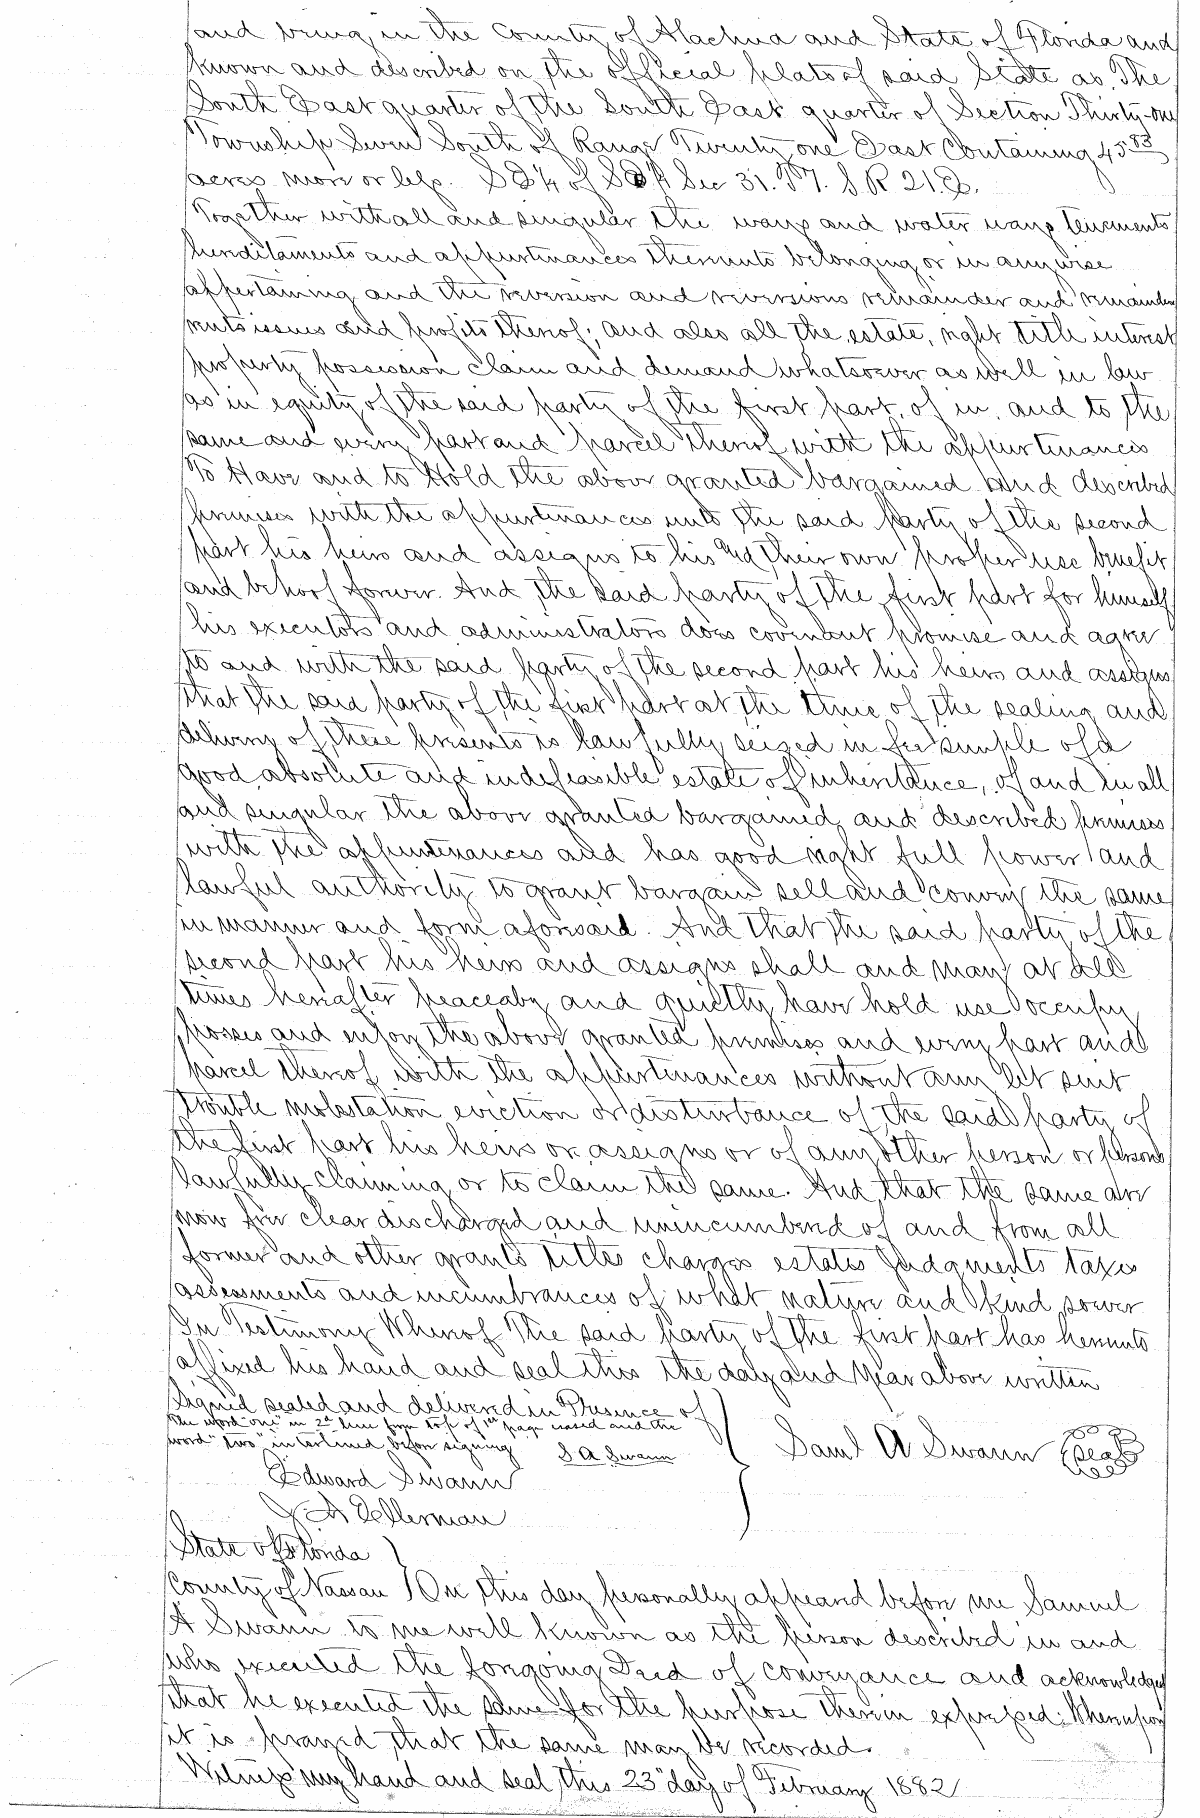 and being in the County of Alachua and State of Florida and
known and described on the official plats of said State as The
South East quarter of the South East quarter of Section Thirty-one
Township Seven South of Range Twenty one East Containing 45 83
acres more or less. S E 1/4 of S E 1/4 Sec 31. T 7. S. R 21. E.
Together with all and singular the ways and water ways tenements
hereditaments and appurtenances thereunto belonging or in anywise
appertaining and the reversion and reversions remainder and remainders
rents issues and profits thereof; and also all the estate, right title interest
property possession claim and demand whatsoever as well in law
as in equity of the said party of the first part, of in, and to the
same and every part and parcel thereof with the appurtenances
To Have and to Hold the above granted bargained and described
premises with the appurtenances unto the said party of the second
part his heirs and assigns to his and their own proper use benefit
and behoof forever. And the said party of the first part for himself
his executors and administrators does covenant promise and agree
to and with the said party of the second part his heirs and assigns
that the said party of the first part at the time of the sealing and
delivery of these presents is lawfully seized in fee simple of a
good absolute and indefeasible estate of inheritance, of and in all
and singular the above granted bargained and described premises
with the appurtenances and has good right full power and
lawful authority to grant bargain sell and convey the same
in manner and form aforesaid. And that the said party of the
second part his heirs and assigns shall and may at all
times hereafter peaceaby and quietly have hold use occupy
posses and enjoy the above granted premises and every part and
parcel thereof with the appurtenances without any let suit
trouble molestation eviction or disturbance of the said party of
the first part his heirs or assigns or of any other person or persons
lawfully claiming or to claim the same. And that the same are
now free clear discharged and unincumbered of and from all
former and other grants titles charges estates judgments taxes
assessments and incumbrances of what nature and kind soever
In Testimony Whereof The said party of the first part has hereunto
affixed his hand and seal this the day and Year above written
Signed sealed and delivered in Presence of
The word "one" in 2d line from top of 1st page erased and the
word "two" interlined before signing S A Swann
Saml A Swann (Seal)
Edward Swann
J. A Ellerman
State of Florida
County of Nassau } On this day personally appeared before me Samuel
A Swann to me well known as the person described in and
who executed the foregoing Deed of conveyance and acknowledged
that he executed the same for the purpose therein expressed: Whereupon
it is prayed that the same may be recorded.
Witness my hand and seal this 23" day of February 1882